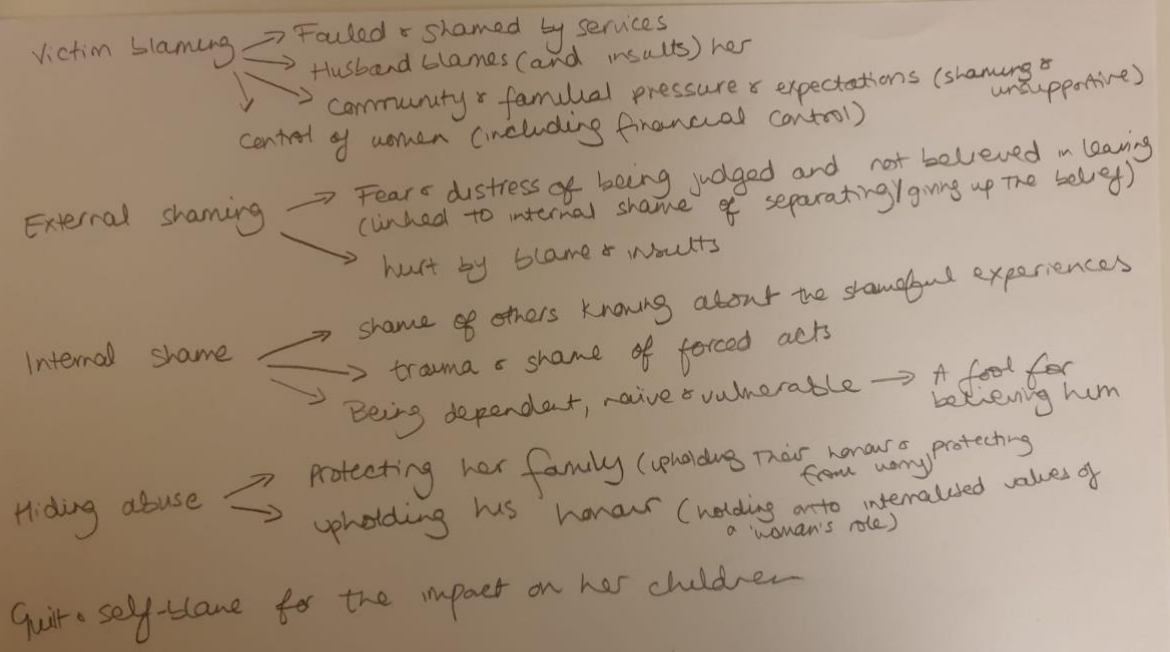 Victim blaming → Failed & shamed by services
→ Husband blames (and insults) her
→ Community & familial pressure & expectations (shaming & unsupportive)
→ Control of women (including financial control)
External shaming → Fear & distress of being judged and not believed in leaving
(linked to internal shame of separating/giving up the belief)
→ hurt by blame & insults
Internal shame → shame of others knowing about the shameful experiences
→ trauma & shame of forced acts
→ Being dependent, naive & vulnerable → A fool for
believing him
Hiding abuse → Protecting her family (upholding their honour & protecting
from worry)
→ upholding his honour (holding onto internalised values of
a 'woman's role)
Guilt & self-blame for the impact on her children